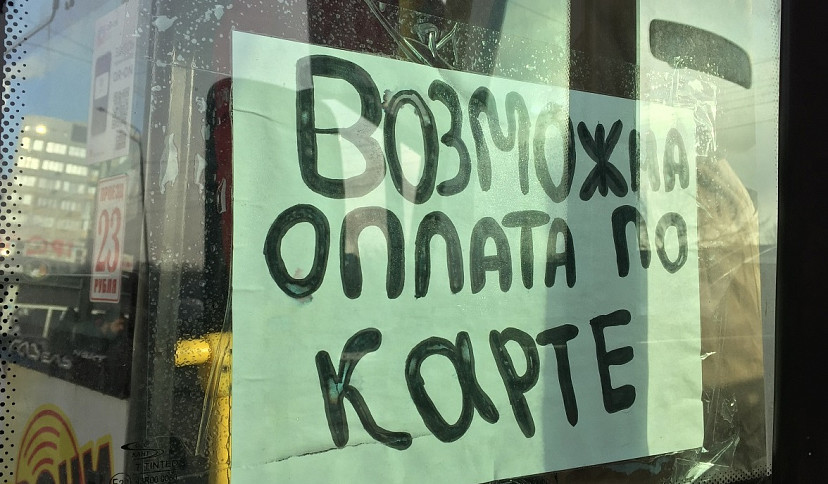 ВОЗМОЖНА
ОПЛАТА ПО
КАРТЕ
ПРОЕЗД
23
РУБЛЯ